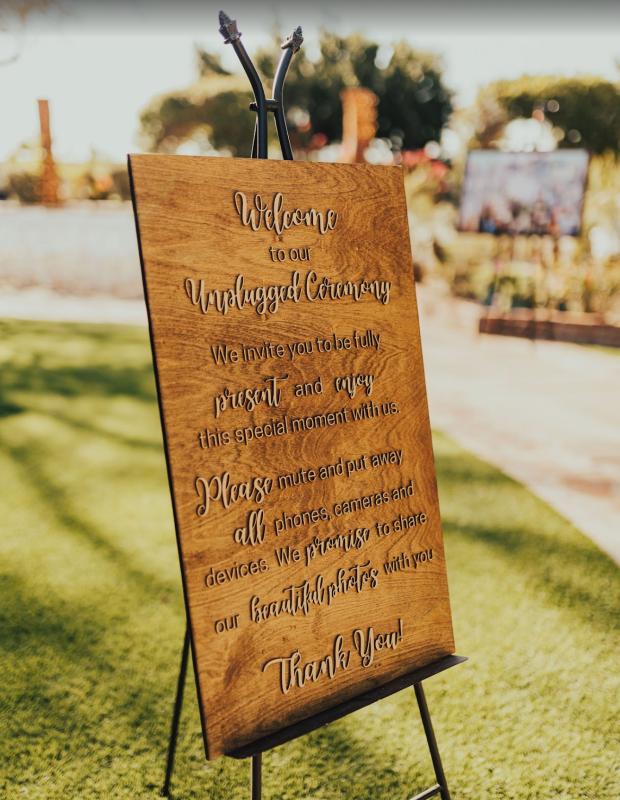 Welcome
to our
Unplugged Ceremony
We invite you to be fully
present and enjoy
this special moment with us.
Please mute and put away
all phones, cameras and
devices. We promise to share
our beautiful photos with you
Thank You!